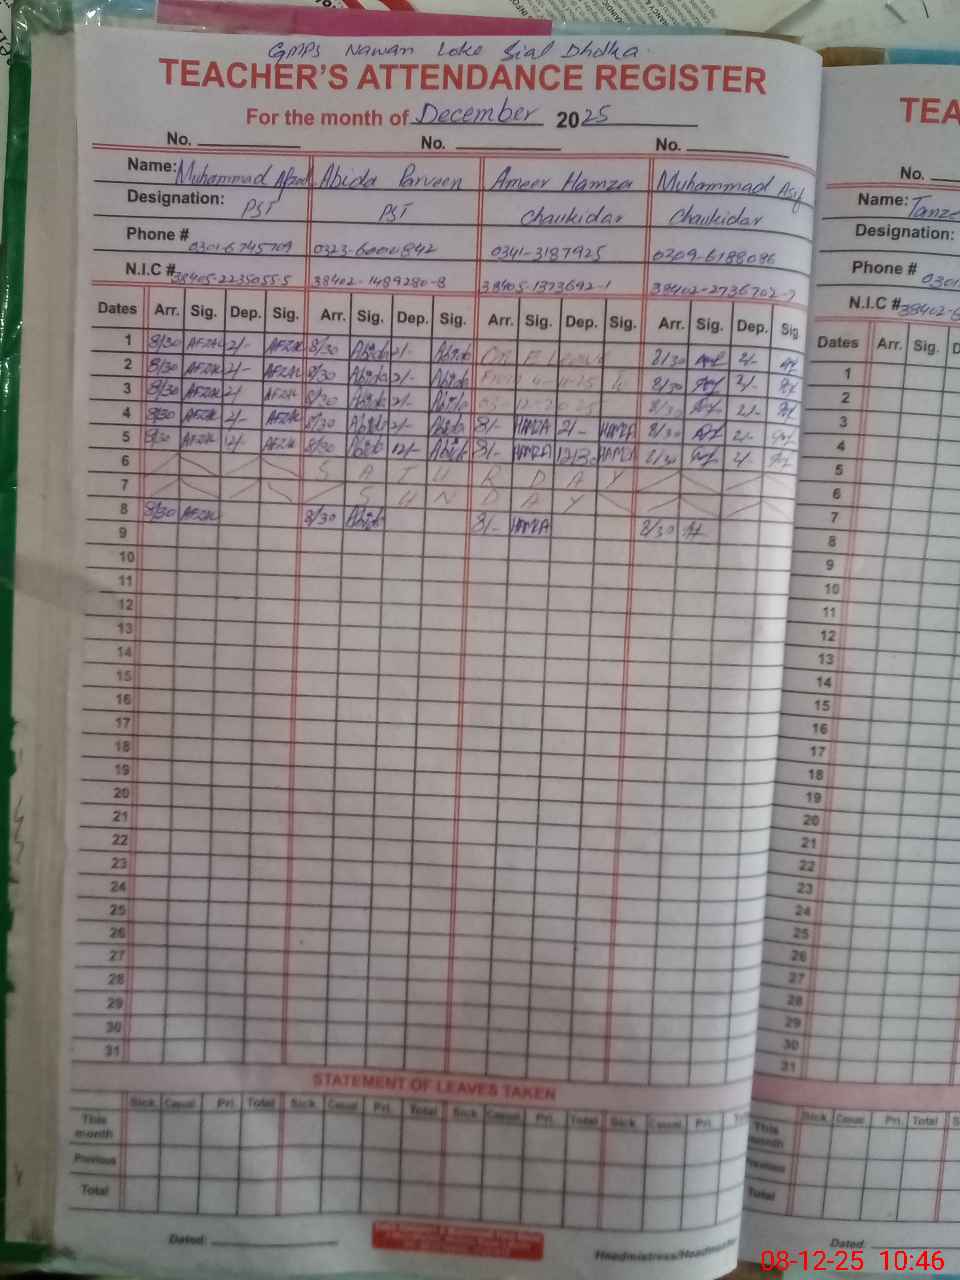 GMPS Nawan Loke Sial Dhdka
TEACHER'S ATTENDANCE REGISTER
For the month of December 2025
No. No. No.
Name: Muhammad Afzal Abida Parveen Ameer Hamza Muhammad Asif
Designation: PST PST Chaukidar Chaukidar
Phone # 0301-6745709 0341-3187925 0309-6188086
N.I.C # 38405-2235055-5 38402-1489280-8 38405-1373692-1
Dates Arr. Sig. Dep. Sig. Arr. Sig. Dep. Sig. Arr. Sig. Dep. Sig. Arr. Sig. Dep. Sig.
1 8/30 AFZAL 2/- AFZAL 8/30 Abida 2/- Abida On E Leave 8/30 2/-
2 8/30 AFZAL 2/- AFZAL 8/30 Abida 2/- Abida From 8/30 2/-
3 8/30 AFZAL 2/- AFZAL 8/30 Abida 2/- Abida 03-12-2025 8/30 2/-
4 8/30 AFZAL 2/- AFZAL 8/30 Abida 2/- Abida 8/- HAMZA 2/- HAMZA 8/30 2/-
5 8/30 AFZAL 12/- AFZAL 8/30 Abida 12/- Abida 8/- HAMZA 12/30 HAMZA 8/30 2/-
6 SATURDAY
7 SUNDAY
8 8/30 AFZAL 8/30 Abida 8/- HAMZA 8/30
9
10
11
12
13
14
15
16
17
18
19
20
21
22
23
24
25
26
27
28
29
30
31
STATEMENT OF LEAVES TAKEN
Sick Casual Pri. Total Sick Casual Pri. Total Sick Casual Pri. Total Sick Casual Pri.
This month
Previous
Total
Dated: Headmistress/Headmaster
TEA
No.
Name: Tanze
Designation:
Phone # 0301
N.I.C # 38402-6
Dates Arr. Sig. D
1
2
3
4
5
6
7
8
9
10
11
12
13
14
15
16
17
18
19
20
21
22
23
24
25
26
27
28
29
30
31
Sick Casual Pri. Total S
This month
Previous
Total
Dated:
08-12-25 10:46